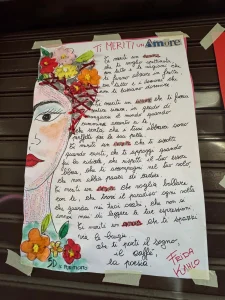 TI MERITI UN Amore
Ti meriti un amore
che ti voglia spettinata,
con tutto e le ragioni che
ti fanno alzare in fretta,
con tutto e i demoni che
non ti lasciano dormire
Ti meriti un amore che ti faccia
sentire sicura, in grado di
mangiare il mondo quando
cammina accanto a te,
che senta che i tuoi abbracci sono
perfetti per la sua pelle.
Ti meriti un amore che ti ascolti
quando canti, che ti appoggi quando
fai la ridicola, che rispetti il tuo essere
libera, che ti accompagni nel tuo volo,
che non abbia paura di cadere.
Ti meriti un amore che voglia ballare
con te, che trovi il paradiso ogni volta
che guarda nei tuoi occhi, che non si
annoi mai di leggere le tue espressioni
Ti meriti un amore che ti spazzi
via le bugie
che ti porti il sogno,
il caffè,
la poesia.
FRIDA
KAHLO